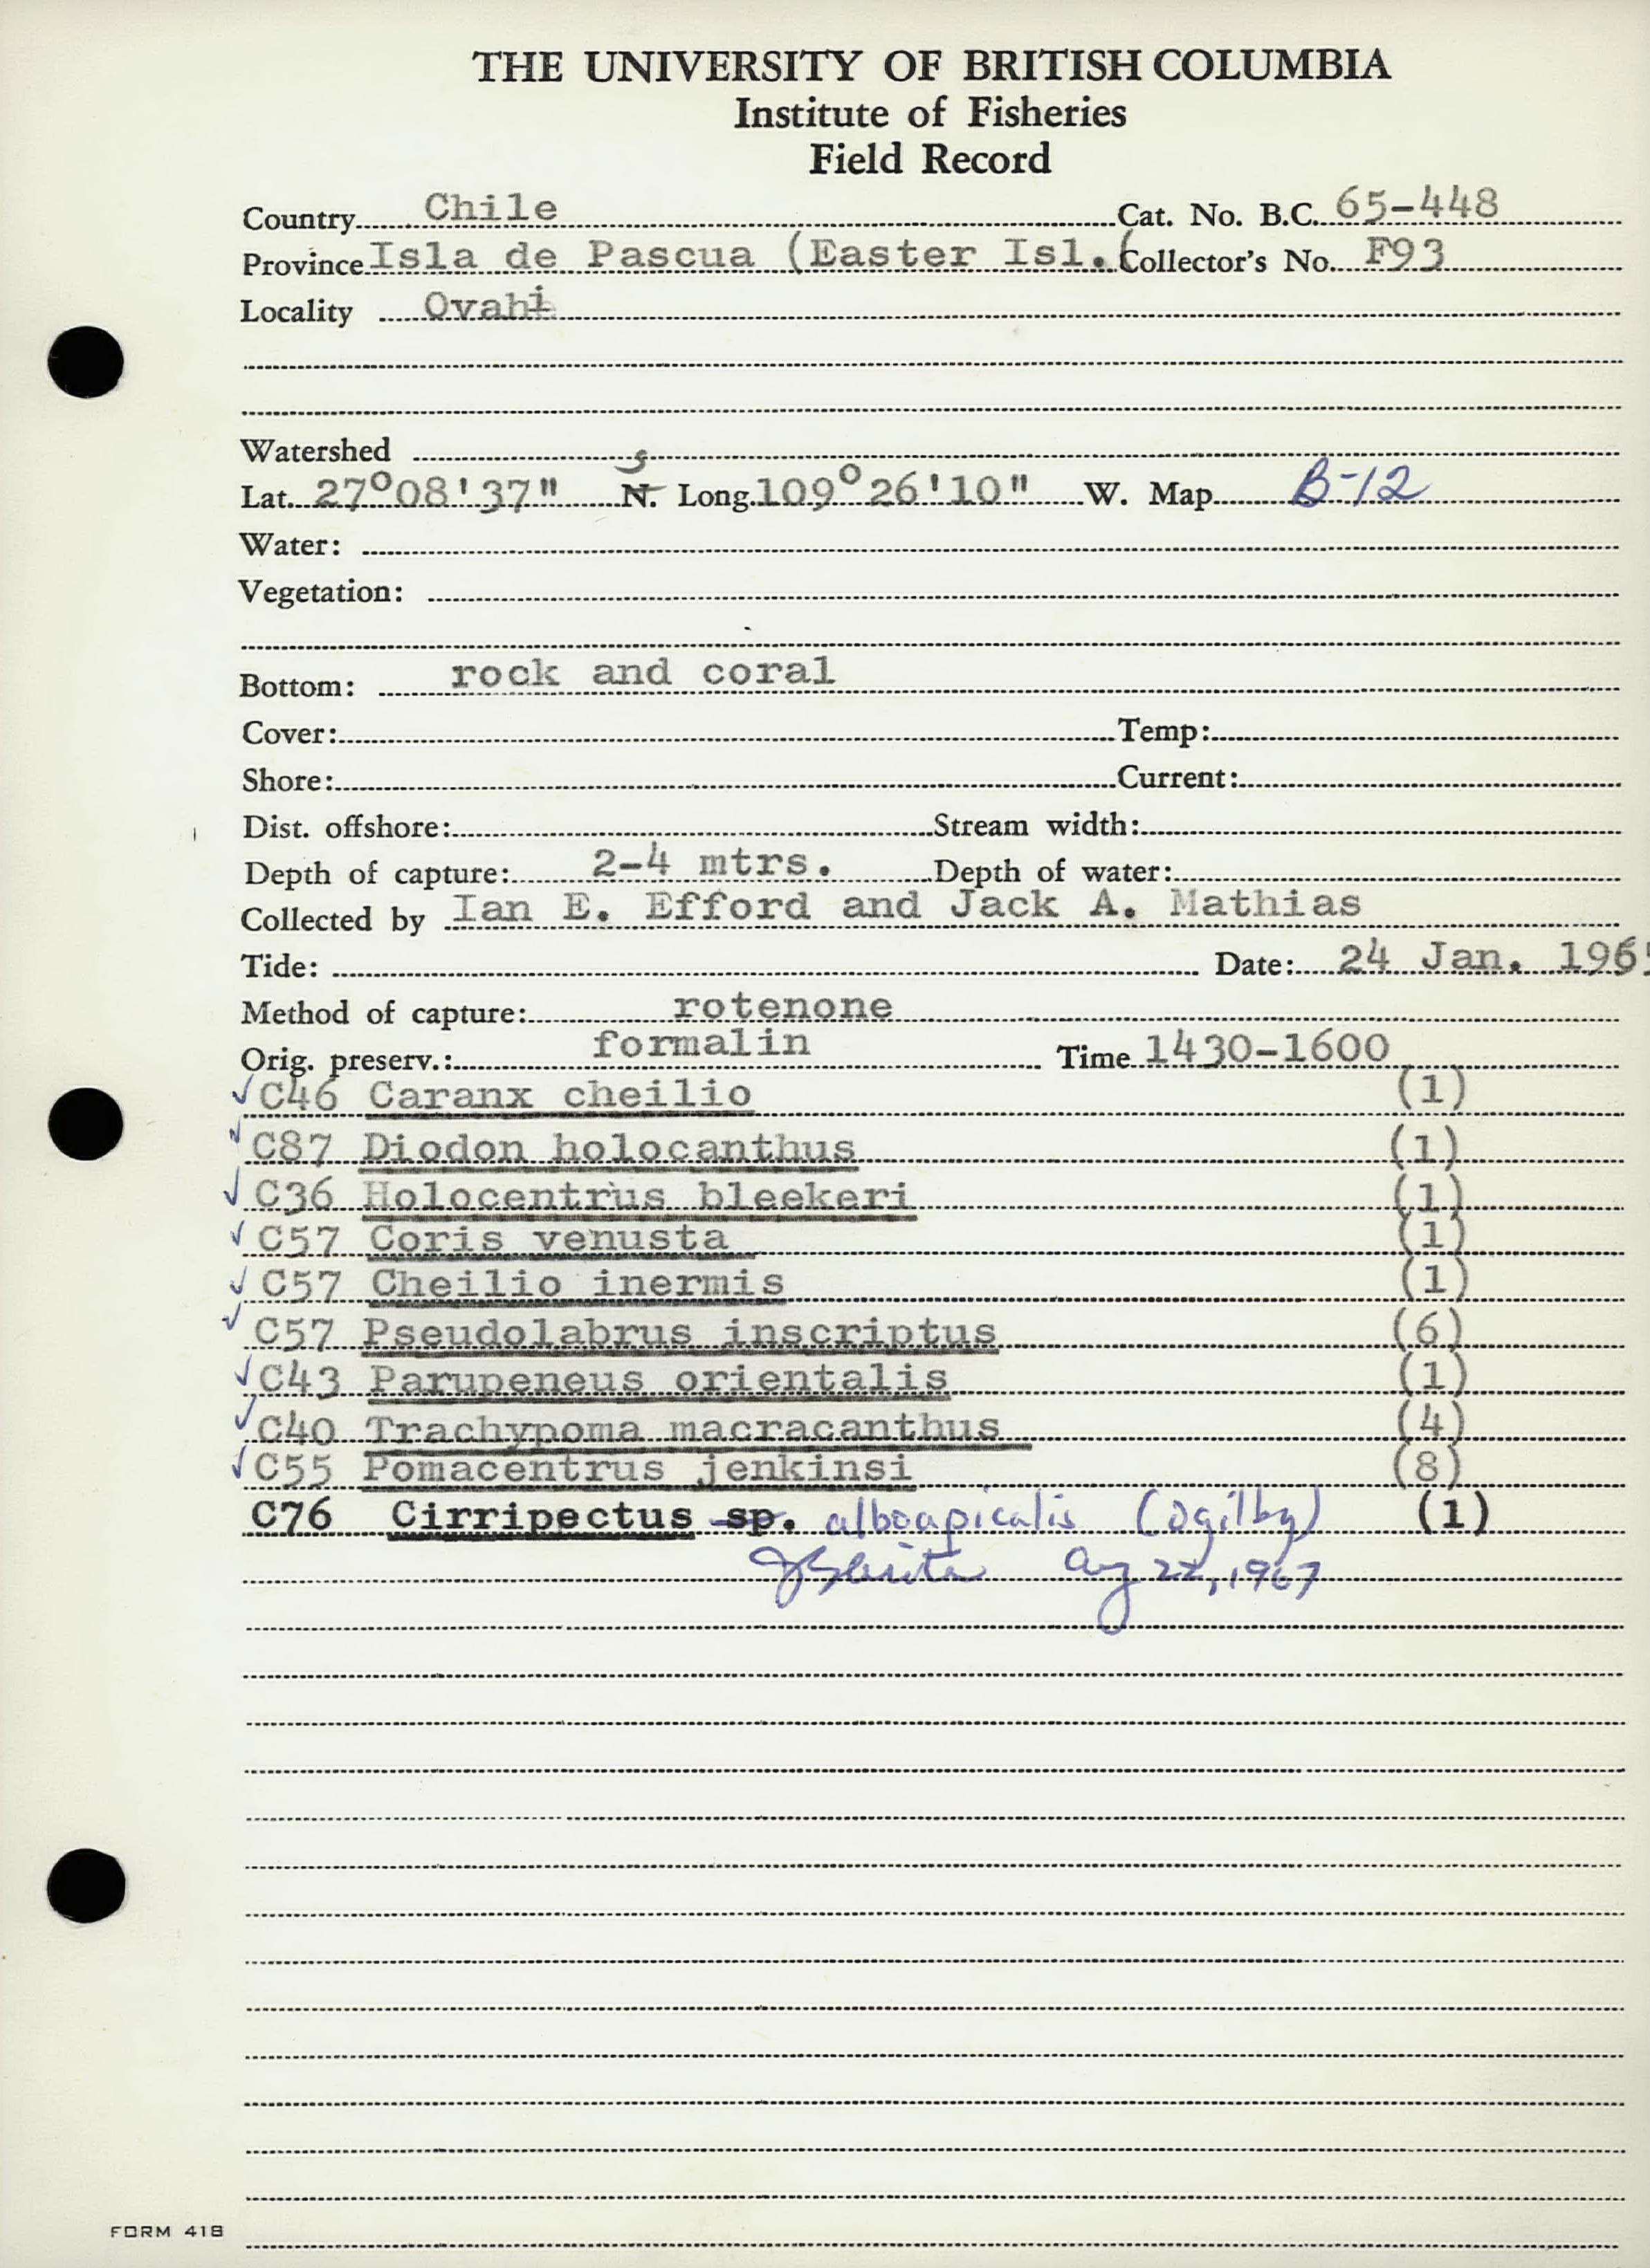 THE UNIVERSITY OF BRITISH COLUMBIA
Institute of Fisheries
Field Record
Country Chile Cat. No. B.C. 65-448
Province Isla de Pascua (Easter Isl.( Collector's No. F93
Locality Ovahi
Watershed
Lat. 27°08'37" N. S Long. 109°26'10" W. Map B-12
Water:
Vegetation:
Bottom: rock and coral
Cover: Temp:
Shore: Current:
Dist. offshore: Stream width:
Depth of capture: 2-4 mtrs. Depth of water:
Collected by Ian E. Efford and Jack A. Mathias
Tide: Date: 24 Jan. 1965
Method of capture: rotenone
Orig. preserv.: formalin Time 1430-1600
✓ C46 Caranx cheilio (1)
✓ C87 Diodon holocanthus (1)
✓ C36 Holocentrus bleekeri (1)
✓ C57 Coris venusta (1)
✓ C57 Cheilio inermis (1)
✓ C57 Pseudolabrus inscriptus (6)
✓ C43 Parupeneus orientalis (1)
✓ C40 Trachypoma macracanthus (4)
✓ C55 Pomacentrus jenkinsi (8)
C76 Cirripectus sp. alboapicalis (Ogilby) (1)
Aug 22, 1967
FORM 418